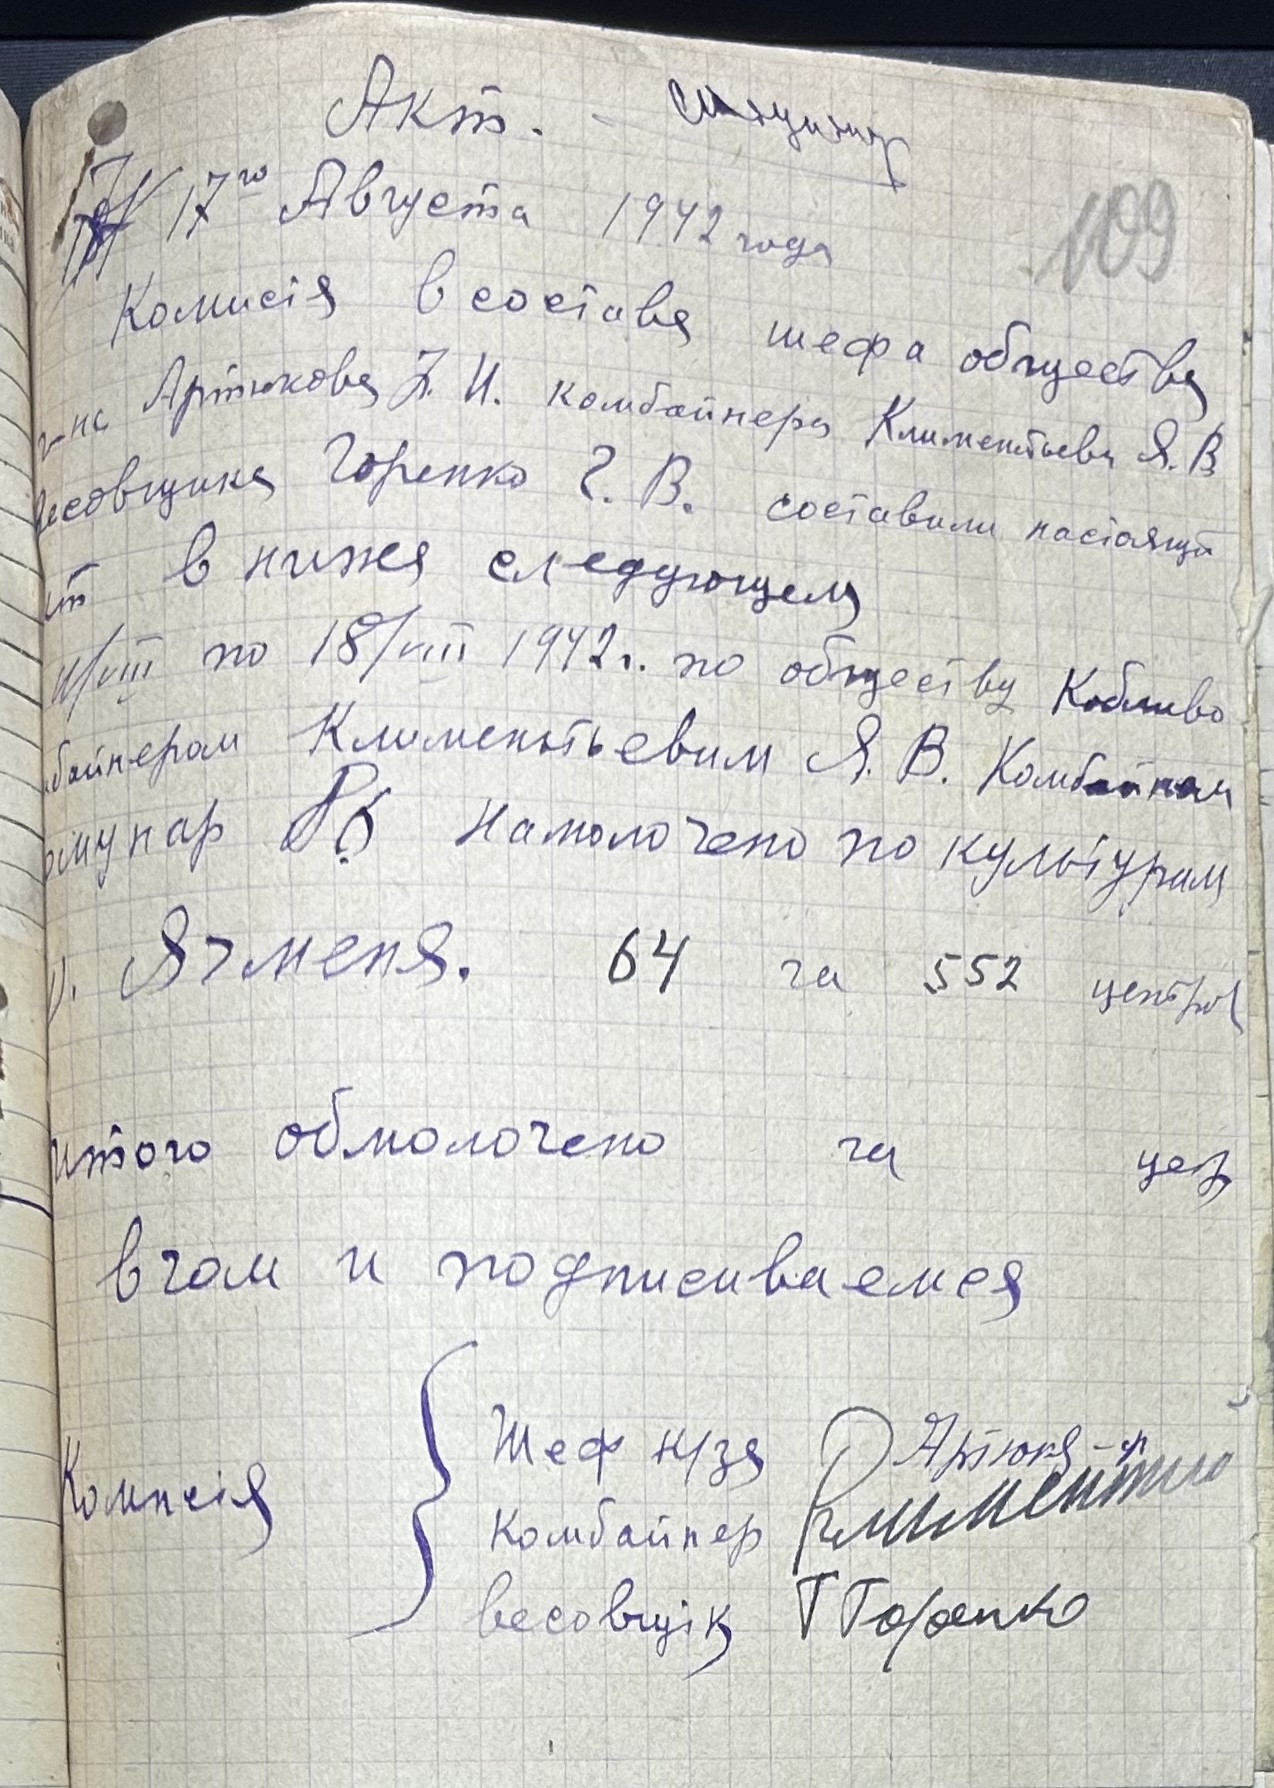 Акт.
17го Августа 1942 года
109
Комисія в составе шефа общества
г-на Артюкова З. И. комбайнера Климентьева Я. В
весовщика Горенко Г. В. составили настоящи
кт в ниже следующем
/VIII по 18/VIII 1942 г. по обществу Коблево
байнером Климентьевим Я. В. Комбайном
омунар Намолочено по культурам
Ячменя. 64 га 552 центров
итого обмолочено га цен
в чом и подписиваемся
Шеф к/за Артюк
Комисія
Комбайнер Климентьев
весовщік Г Горенко